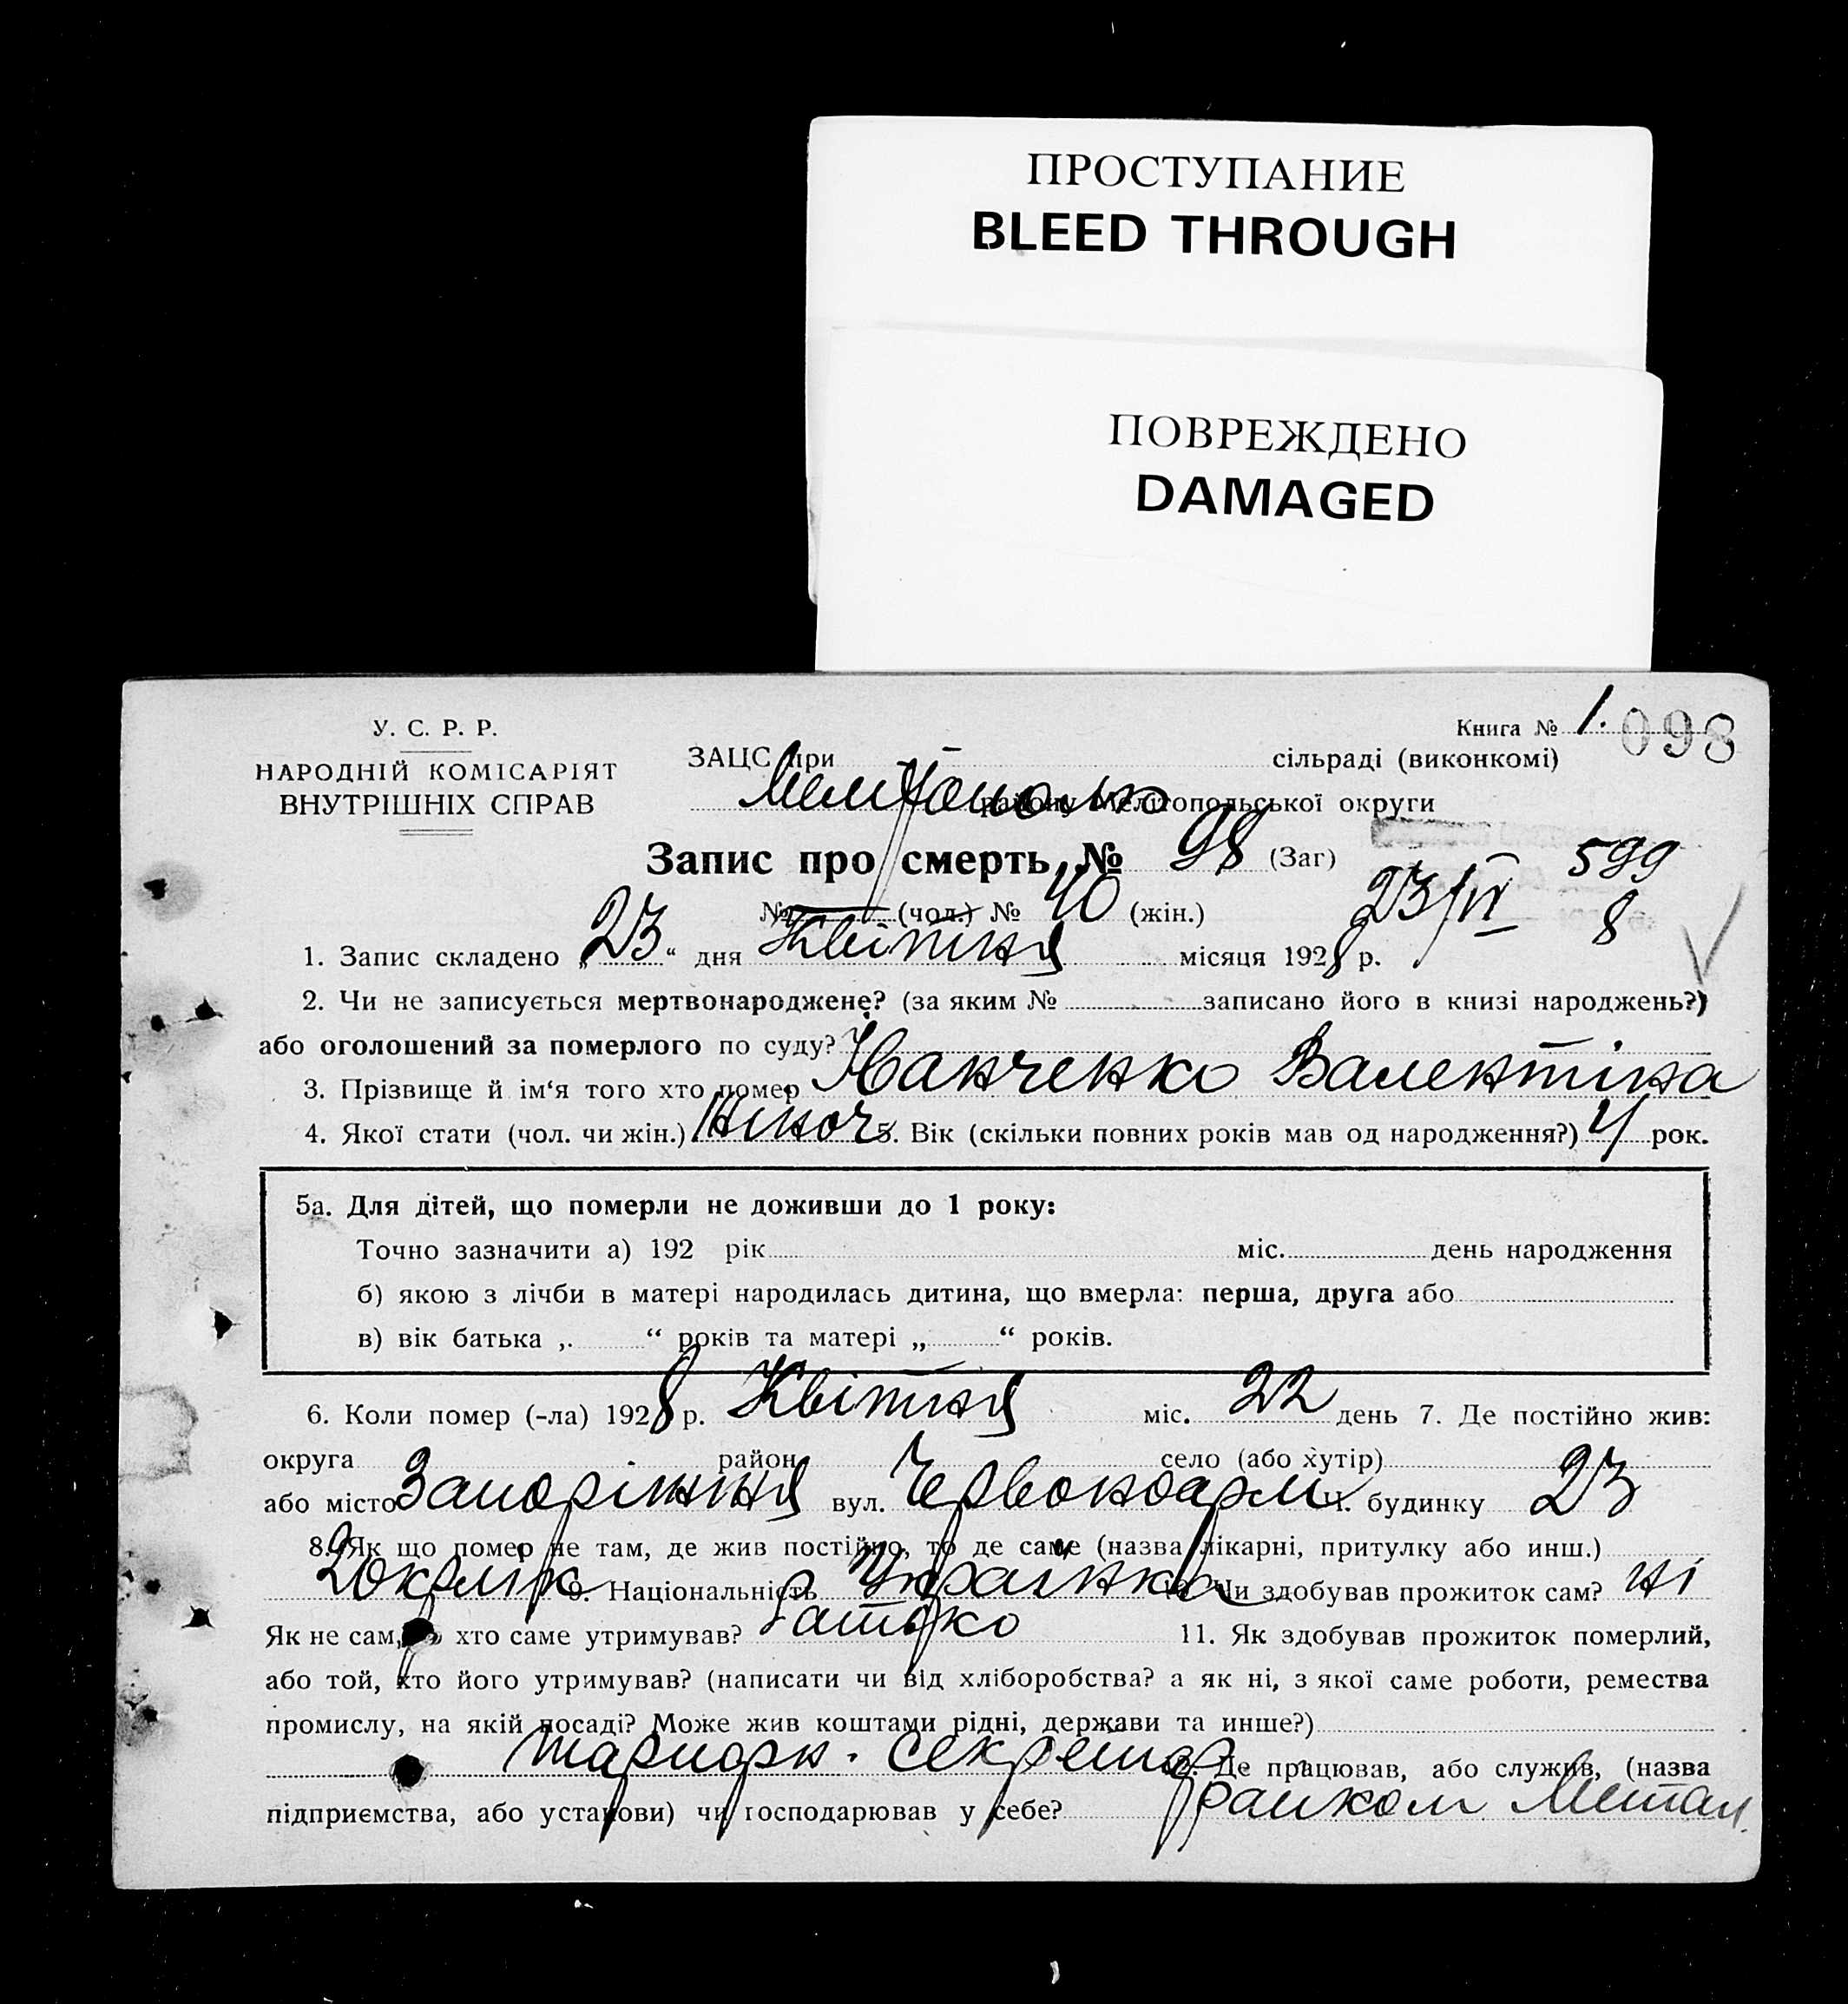 ПРОСТУПАНИЕ
BLEED THROUGH
ПОВРЕЖДЕНО
DAMAGED
У. С. Р. Р.
НАРОДНІЙ КОМІСАРІЯТ
ВНУТРІШНІХ СПРАВ
Книга № 1. 098
ЗАЦС при — сільраді (виконкомі)
району Мелітопольської округи
Запис про смерть, № 98 (Заг)
599
№ (чол.) № 40 (жін.) 23/IV 8
1. Запис складено „23“ дня Квітня місяця 1928 р.
2. Чи не записується мертвонароджене? (за яким № записано його в книзі народжень?)
або оголошений за померлого по суду?
3. Прізвище й ім‘я того хто помер Іванченко Валентіна
4. Якої стати (чол. чи жін.) жіноч 5. Вік (скільки повних років мав од народження?) 4 рок.
5а. Для дітей, що померли не доживши до 1 року:
Точно зазначити а) 192 рік міс. день народження
б) якою з лічби в матері народилась дитина, що вмерла: перша, друга або
в) вік батька „ “ років та матері „ “ років.
6. Коли помер (-ла) 1928 р. Квітня міс. 22 день 7. Де постійно жив:
округа район село (або хутір)
або місто Запоріжжя вул. Червоноарм Ч. будинку 23
8. Як що помер не там, де жив постійно, то де саме (назва лікарні, притулку або инш.)
9. Національність Українка 10. Чи здобував прожиток сам? ні
Як не сам, то хто саме утримував? батько 11. Як здобував прожиток померлий,
або той, хто його утримував? (написати чи від хліборобства? а як ні, з якої саме роботи, ремества
промислу, на якій посаді? Може жив коштами рідні, держави та инше?)
секретар 12. Де працював, або служив, (назва
підприємства, або установи) чи господарював у себе? райком Метал.